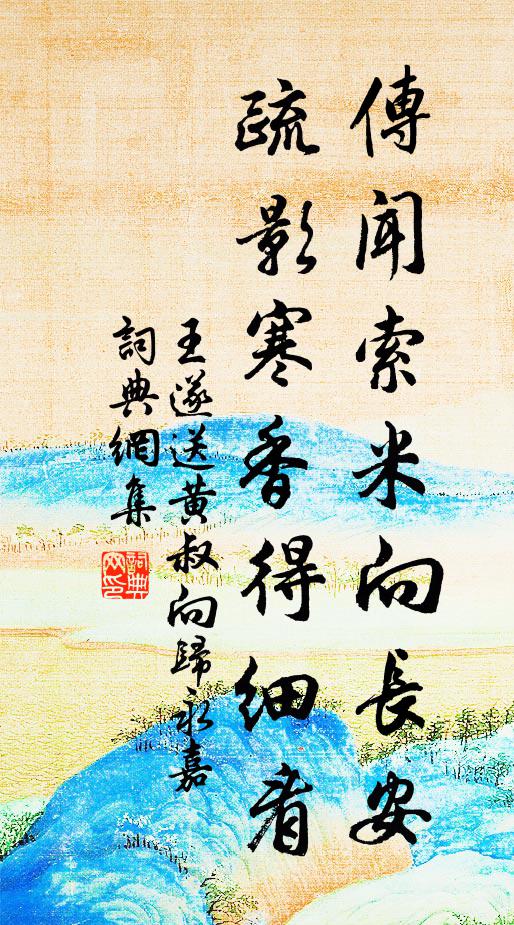 傳聞索米向長安
疏影寒香得細看
王遂送黄叔向歸永嘉
詞典網集
詞典
网印